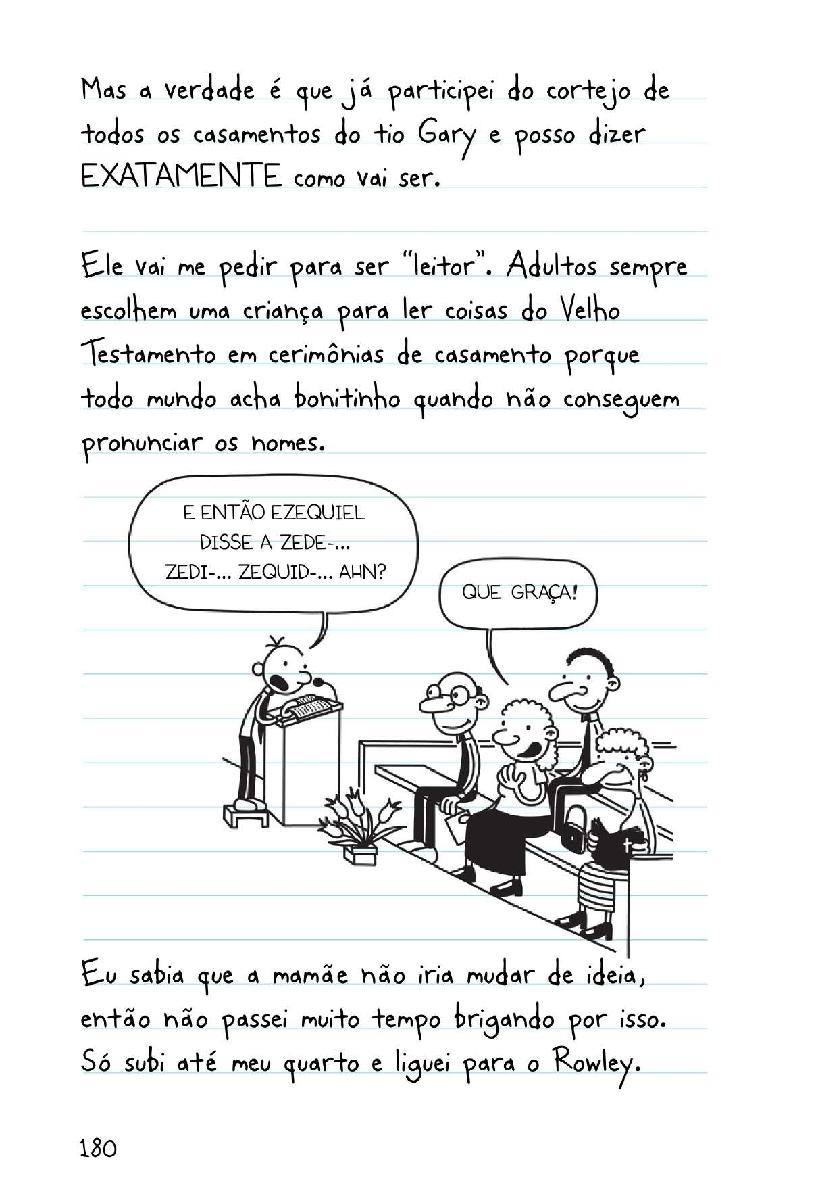 Mas a verdade é que já participei do cortejo de
todos os casamentos do tio Gary e posso dizer
EXATAMENTE como vai ser.
Ele vai me pedir para ser “leitor”. Adultos sempre
escolhem uma criança para ler coisas do Velho
Testamento em cerimônias de casamento porque
todo mundo acha bonitinho quando não conseguem
pronunciar os nomes.
E ENTÃO EZEQUIEL
DISSE A ZEDE-...
ZEDI-... ZEQUID-... AHN?
QUE GRAÇA!
Eu sabia que a mamãe não iria mudar de ideia,
então não passei muito tempo brigando por isso.
Só subi até meu quarto e liguei para o Rowley.
180